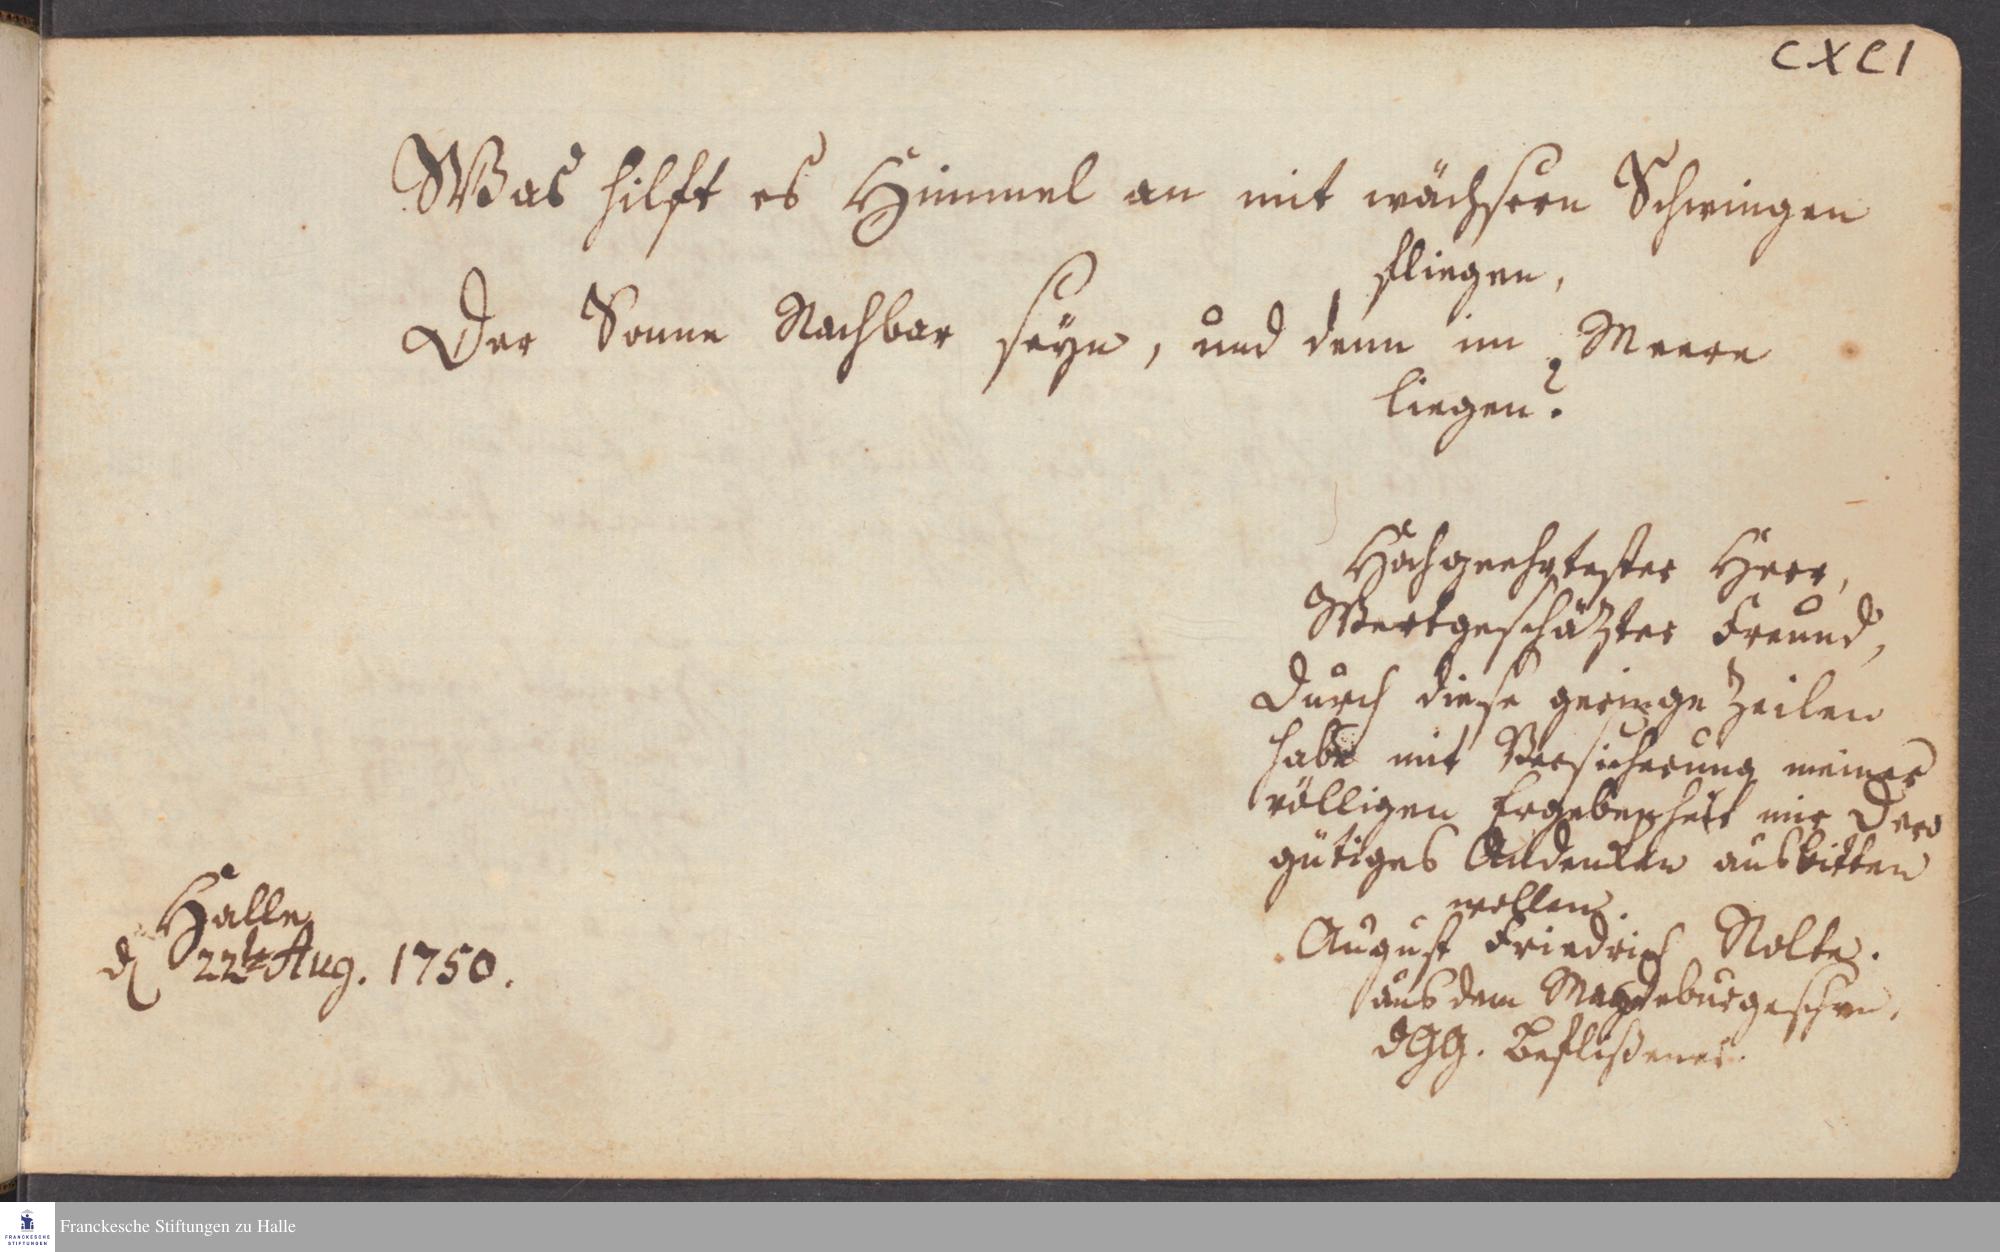 CXCI
Was hilft es Himmel an mit wächsern Schwingen
fliegen,
Der Sonne Nachbar seyn, und denn im Meere
liegen?
Hochgeehrtester Herr,
Wertgeschätzter Freund,
Durch diese geringe Zeilen
habe mit Versicherung meiner
völligen Ergebenheit mir Dero
gütiges Andenken ausbitten
wollen.
August Friedrich Nolte.
aus dem Magdeburgeschen,
dGG. Beflißener.
Halle
d 22te Aug. 1750.
Franckesche Stiftungen zu Halle
FRANCKESCHE
STIFTUNGEN